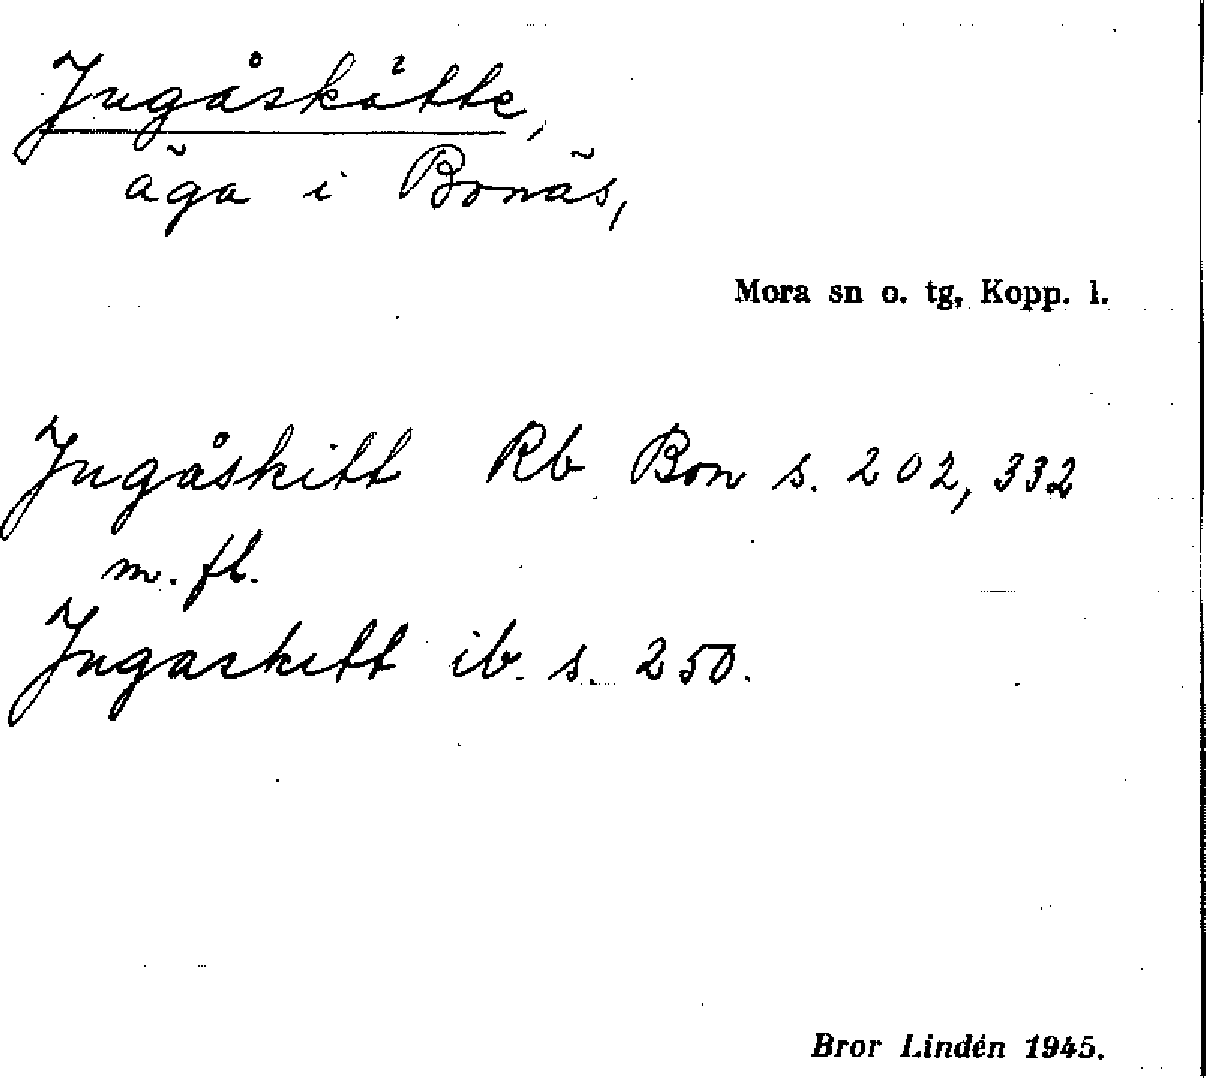 Jugåskåtte,
äga i Bonäs,
Mora sn o. tg, Kopp. l.
Jugåskitt Rb Bon s. 202, 332
m. fl.
Jugaskitt ib. s. 250.
Bror Lindén 1945.